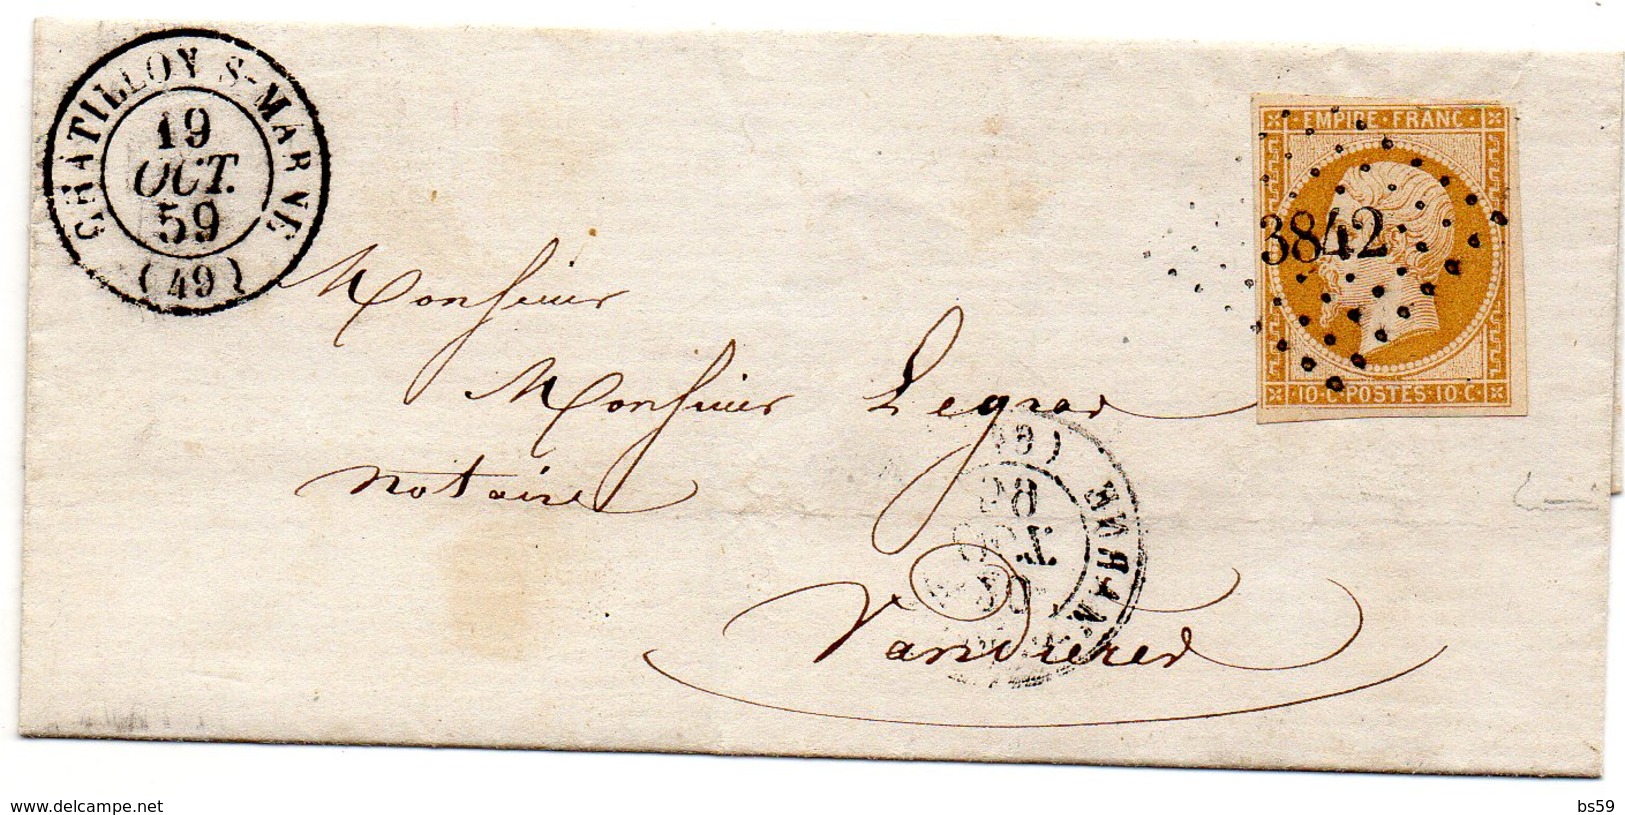 CHATILLON S-MARNE
19
OCT.
59
(49)
EMPIRE·FRANC·
3842
10·C·POSTES·10·C·
Monsieur
Monsieur Legras
notaire
Vandières
delcampe.net
bs59